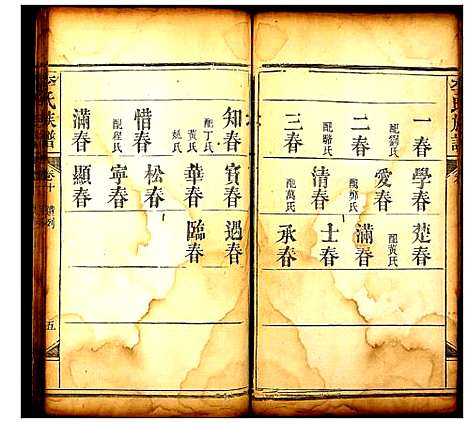 一春 配劉氏
二春 配駱氏
三春
學春
愛春 配鄭氏
清春 配萬氏
楚春 配黃氏
滿春
士春
承春
知春 配丁氏 黃氏 姚氏
惜春 配程氏
滿春
實春
華春
松春
寧春
顯春
過春
臨春
李氏族譜
卷十
五